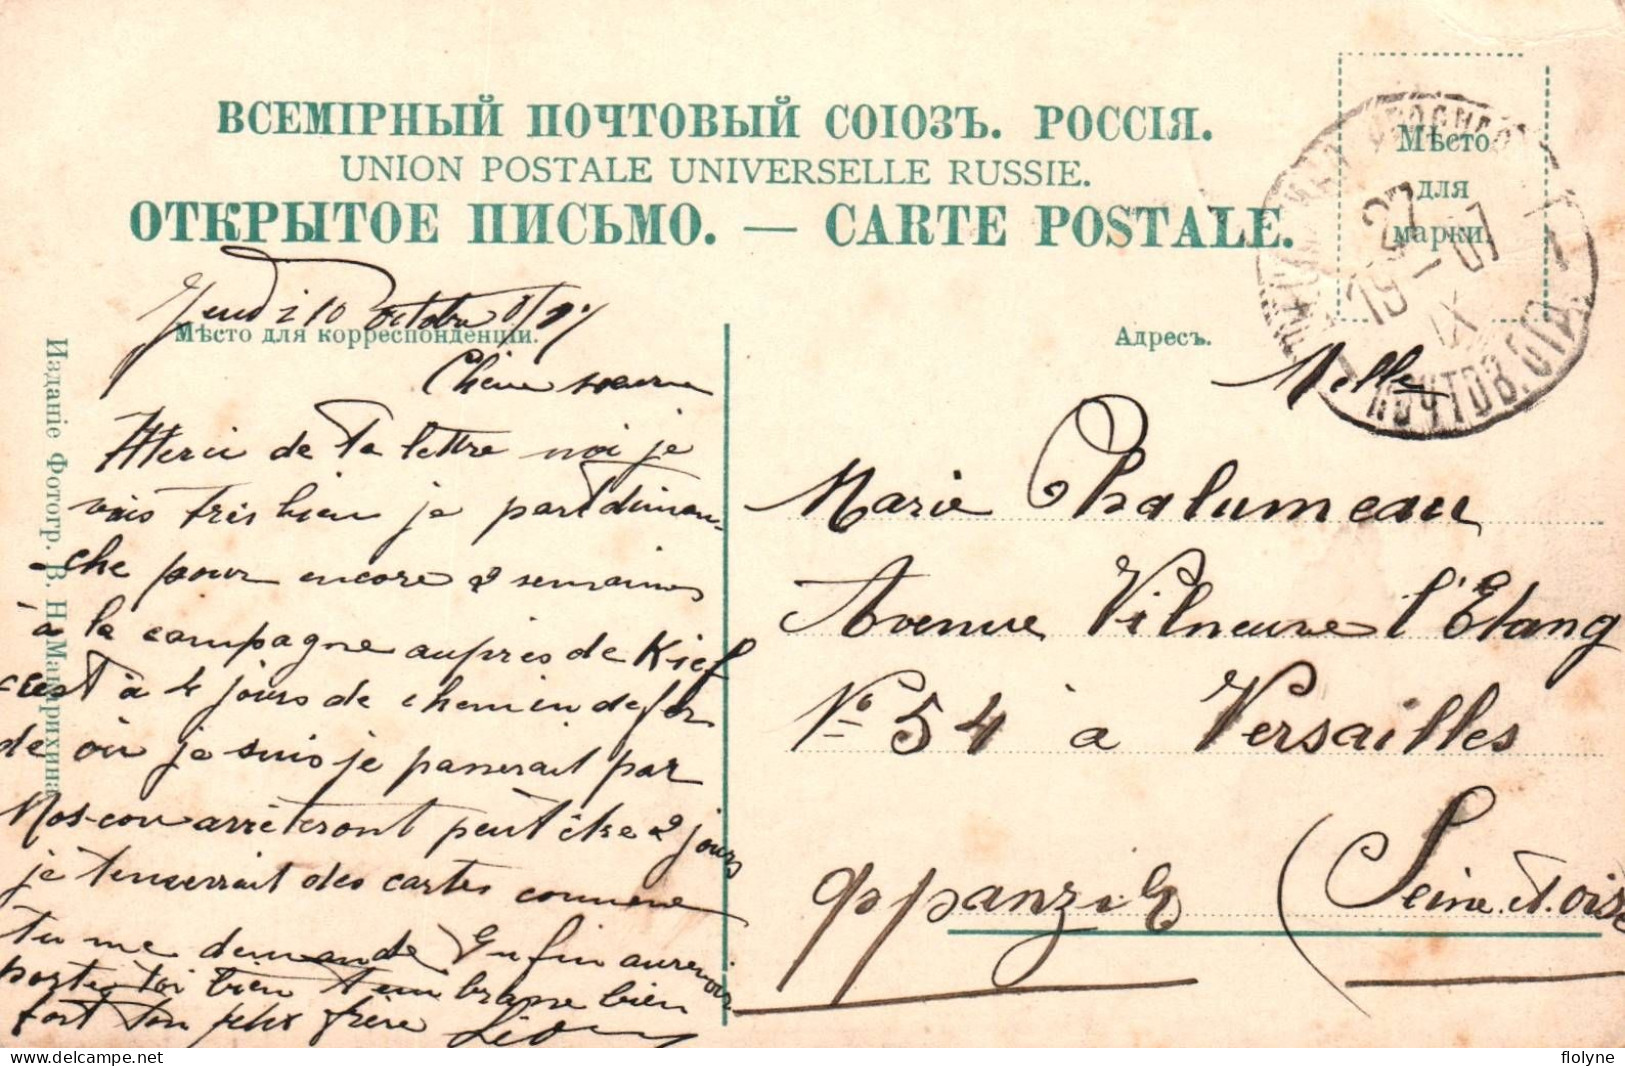 ВСЕМІРНЫЙ ПОЧТОВЫЙ СОЮЗЪ. РОССІЯ.
UNION POSTALE UNIVERSELLE RUSSIE.
ОТКРЫТОЕ ПИСЬМО. — CARTE POSTALE.
Мѣсто
для
марки.
27
19 — 07
IX
Мѣсто для корреспонденціи.
Адресъ.
Изданіе Фотогр. В. Н. Мамрихина
Jeudi 10 Octobre
Chère soeur
Merci de ta lettre moi je
vais très bien je part diman-
che pour encore 2 semaines
à la campagne auprès de Kief
c'est à 4 jours de chemin de fer
de où je suis je passerait par
Moscou arrèteront peut être 2 jours
je t'enverrait des cartes comme
tu me demande Enfin aurevoir
portes toi bien t'embrasse bien
fort ton frère Léon
Melle
Marie Chalumeau
Avenue Vilneuve l'Etang
No 54 à Versailles
(Seine et oise
Франзiя
flolyne